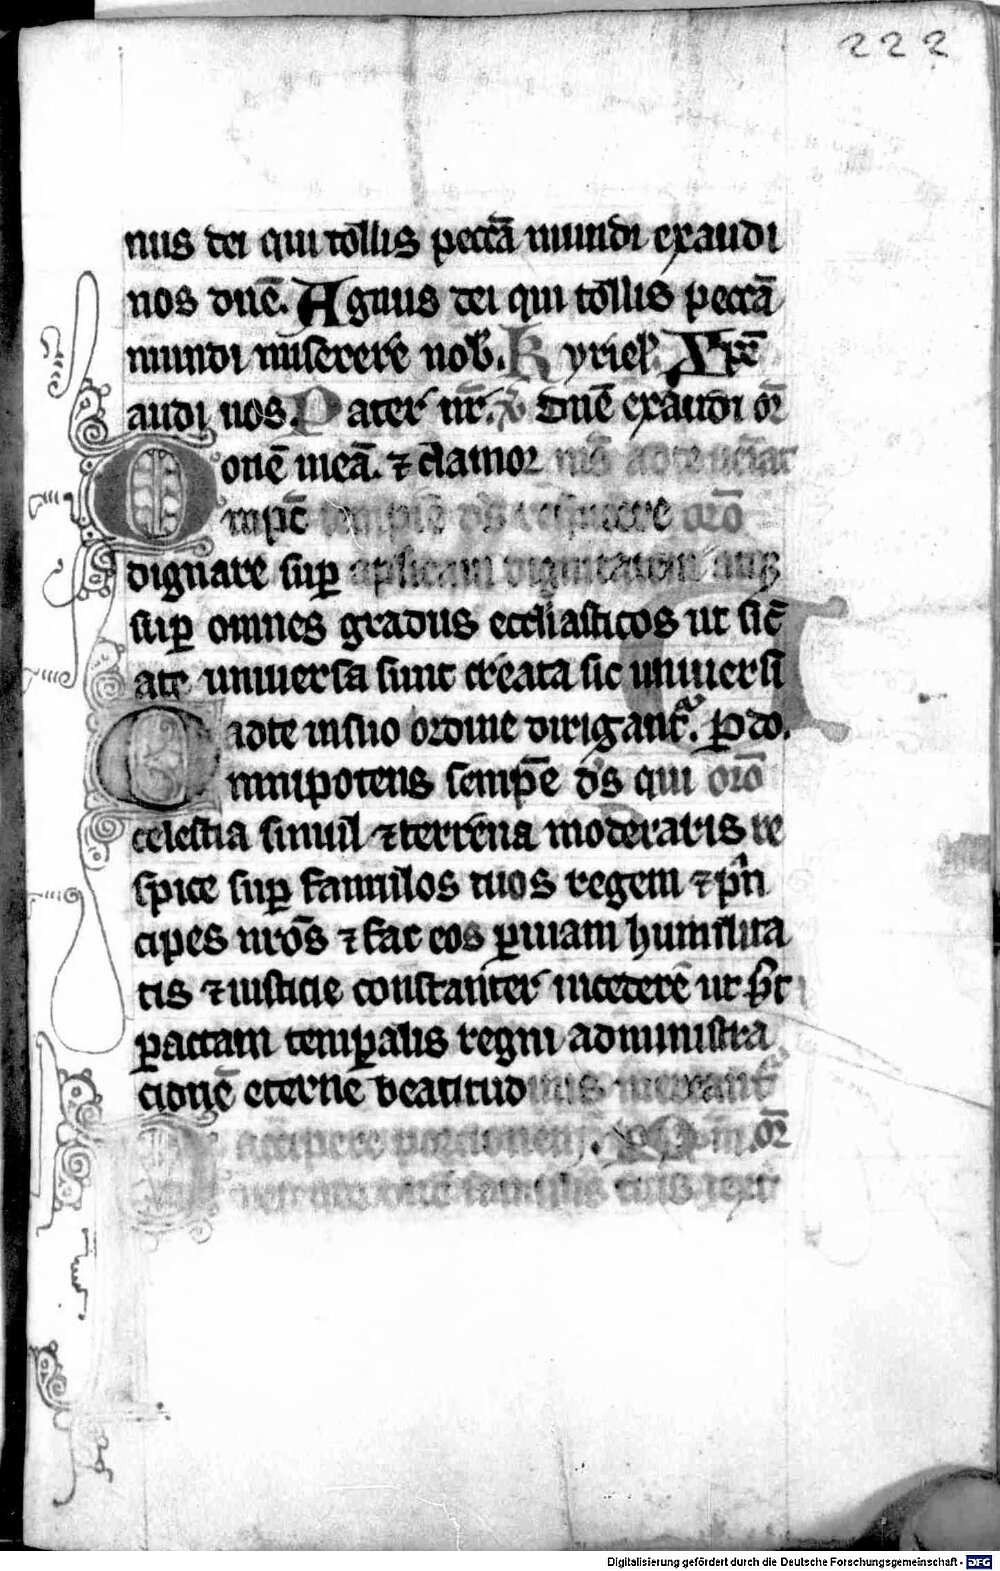 222
nus dei qui tollis peccā mundi exaudi
nos dn̄e. Agnus dei qui tollis peccā
mundi miserere nob. Kyriel. Xpē
audi nos. Pater nr̄. dn̄e exaudi or̄
onē meā. ⁊ clamor
Ompc̄ sempit̄ ds̄ orō
dignare suꝑ aplicam dignitatem
suꝑ omnes gradus eccliasticos ut sic̄
ate universa sunt creata sic universi
adte insuo ordine dirigant᷑. ꝑ do.
Omnipotens sempit̄e ds̄ qui orō
celestia simul ⁊ terrena moderaris re
spice suꝑ famulos tuos regem ⁊ prin
cipes nrōs ⁊ fac eos ꝑ viam humilita
tis ⁊ iusticie constanter incedere ut
ꝑactam temꝑalis regni administra
cionē eterne beatitudinis mereant᷑
accipere porcionem. or̄
famulis tuis
Digitalisierung gefördert durch die Deutsche Forschungsgemeinschaft - DFG